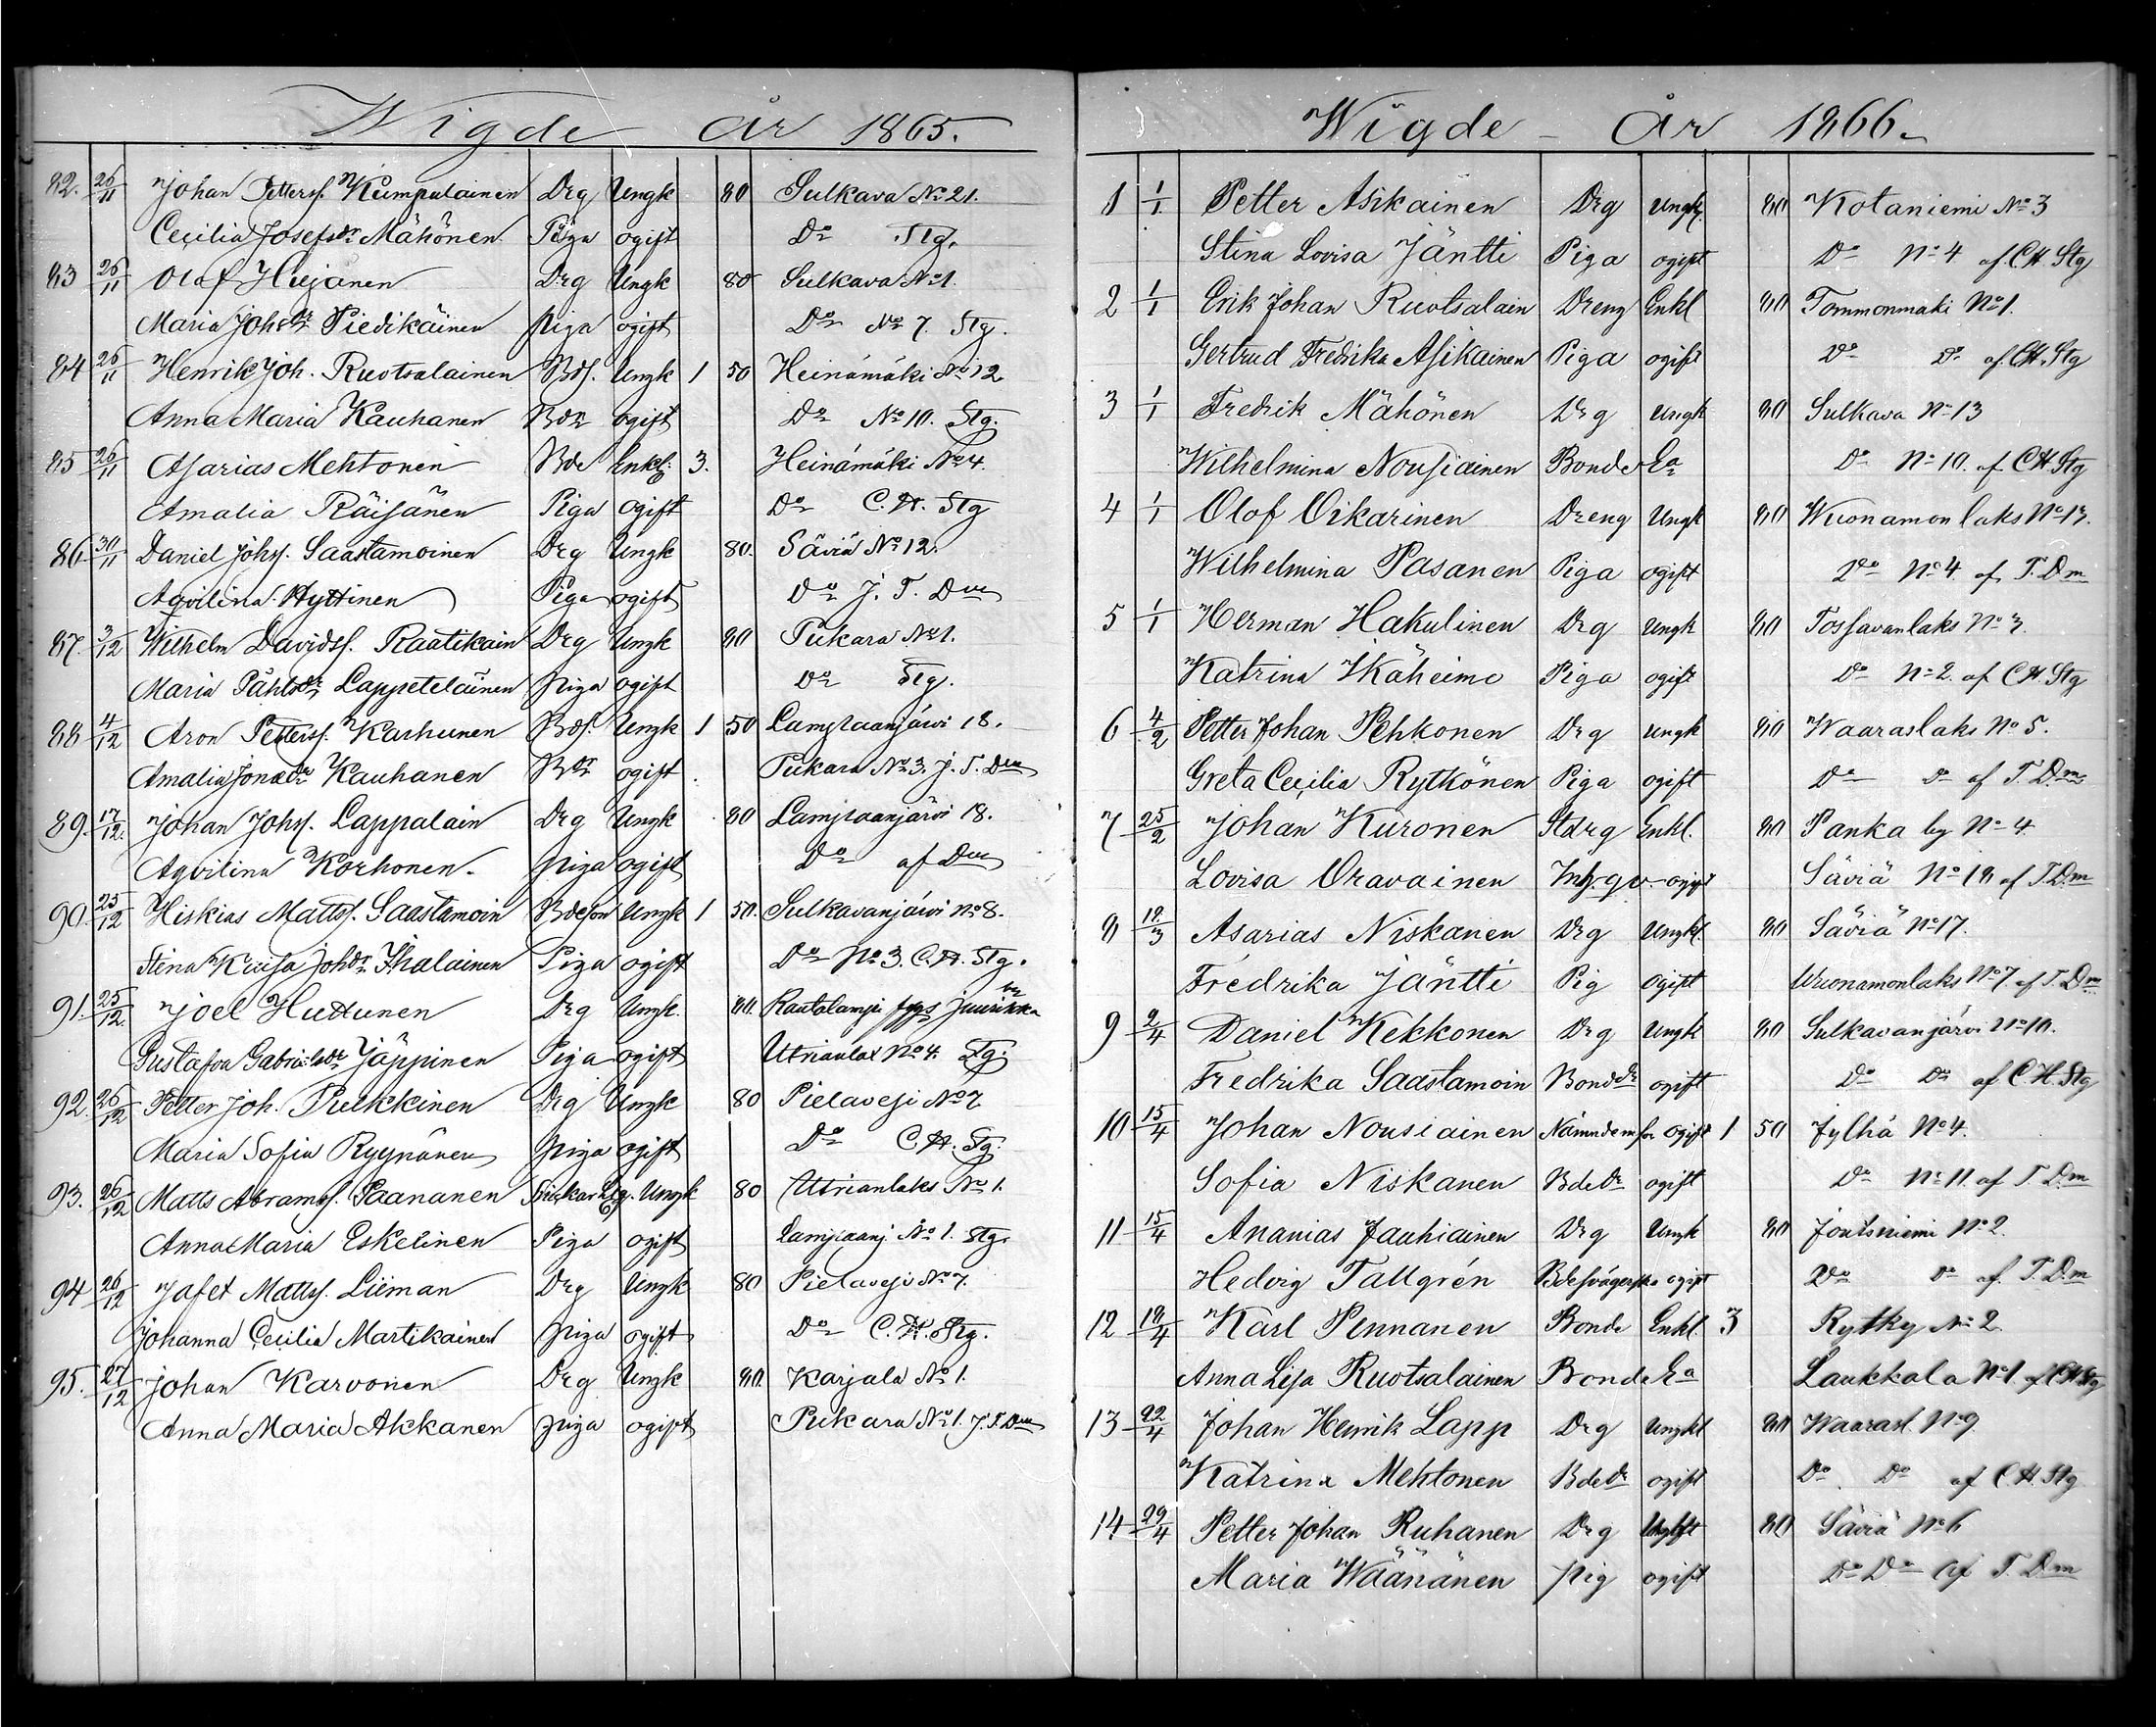 Wigde år 1865.
82. 26/11 Johan Petterss. Kumpulainen Drg Ungk 80 Sulkava No 21.
Cecilia Josefsdr Mähönen Piga ogift Do Stg.
83 26/11 Olof Hujanen Drg Ungk 80 Sulkava No 1.
Maria Johsdr Piedikäinen piga ogift Do No 7. Stg.
84 26/11 Henrik Joh. Ruotsalainen Bds. Ungk 1 50 Heinämäki No 12
Anna Maria Kauhanen Bdr ogift Do No 10. Stg.
85 26/11 Asarias Mehtonen Bde Enkl. 3. Heinämäki No 4.
Amalia Räisänen Piga ogift Do C.H. Stg
86 30/11 Daniel Johss. Saastamoinen Drg Ungk 80. Säviä No 12.
Aqvilina Hyttinen Piga ogift Do J. T. Dm
87. 3/12 Wilhelm Davidss. Raatikain Drg Ungk 80 Pukara No 1.
Maria Påhlsdr Lappeteläinen piga ogift Do Stg.
88 4/12 Aron Petterss. Karhunen Bds. Ungk 1 50 Lampaanjärvi 18.
Amalia Jonasdr Kauhanen Bdr ogift Pukara No 3. J. T. Dm
89. 17/12. Johan Johss. Lappalain Drg Ungk 80 Lampaanjärvi 18.
Aqvilina Korhonen. piga ogift Do af Dm
90. 25/12 Hiskias Mattss. Saastamoin Bdeson Ungk 1 50. Sulkavanjärvi No 8.
Stina Kaisa Johdr Ihalainen Piga ogift Do No 3. C.H. Stg.
91. 25/12. Joel Huttunen Drg Ungk. 80. Rautalampi Juurikka
Gustafva Gabrielsdr Jäppinen Piga ogift Utrianlax No 4. Stg.
92. 26/12 Petter Joh. Pulkkinen Drg Ungk 80 Pielavesi No 7
Maria Sofia Ryynänen piga ogift Do C.H. Stg.
93. 26/12 Matts Abramss. Saananen Ungk 80 Utrianlaks No 1.
Anna Maria Eskelinen Piga ogift Lampaanj No 1. Stg.
94 26/12 Jafet Mattss. Liiman Drg Ungk 80 Pielavesi No 7.
Johanna Cecilia Martikainen piga ogift Do C.H. Stg.
95. 27/12 Johan Karvonen Drg Ungk 80. Karjala No 1.
Anna Maria Akkanen piga ogift Pukara No 1. J. T. Dm
Wigde År 1866.
1 1/1 Petter Asikainen Drg Ungk. 80 Kotaniemi No 3
Stina Lovisa Jäntti Piga ogift Do No 4 af CH. Stg
2 1/1 Erik Johan Ruotsalain Dreng Enkl 80 Tommonmäki No 1.
Gertrud Fredrika Asikainen Piga ogift Do Do af CH. Stg
3 1/1 Fredrik Mähönen Drg Ungk 80 Sulkava No 13
Wilhelmina Nousiainen Bonde Ea Do No 10. af CH. Stg
4 1/1 Olof Oikarinen Dreng Ungk 80 Wuonamonlaks No 13.
Wilhelmina Pasanen Piga ogift Do No 4 af T. Dm
5 1/1 Herman Hakulinen Drg Ungk 80 Tossavanlaks No 3.
Katrina Ikäheimo Piga ogift Do No 2. af CH. Stg
6 4/2 Petter Johan Pehkonen Drg Ungk 80 Waaraslaks No 5.
Greta Cecilia Rytkönen Piga ogift Do Do af T. Dm
7 25/2 Johan Kuronen Stdrg Enkl. 80 Panka by No 4
Lovisa Oravainen Inh.qv. ogift Säviä No 18 af T. Dm
8 18/3 Asarias Niskanen Drg Ungkl. 80 Säviä No 17.
Fredrika Jäntti Pig ogift Wuonamonlaks No 7. af T. Dm
9 2/4 Daniel Kekkonen Drg Ungk 80 Sulkavanjärvi No 10.
Fredrika Saastamoin Bondedr ogift Do Do af C.H. Stg
10 15/4 Johan Nousiainen Nämndem son ogift 1 50 Jylhä No 4.
Sofia Niskanen Bdedr ogift Do No 11. af T. Dm
11 15/4 Ananias Jauhiainen Drg Ungk 80 Joutsniemi No 2.
Hedvig Tallgrén Bdesvägerska ogift Do Do af. T. Dm
12 18/4 Karl Pennanen Bonde Enkl. 3 Rytky No 2
Anna Lisa Ruotsalainen Bonde Ea Laukkala No 1 af CH Stg
13 22/4 Johan Henrik Lapp Drg Ungkl 80 Waarasl. No 9
Katrina Mehtonen Bdedr ogift Do. Do af C.H. Stg
14 29/4 Petter Johan Ruhanen Drg 80 Säviä No 6
Maria Wäänänen pig ogift Do Do af T. Dm